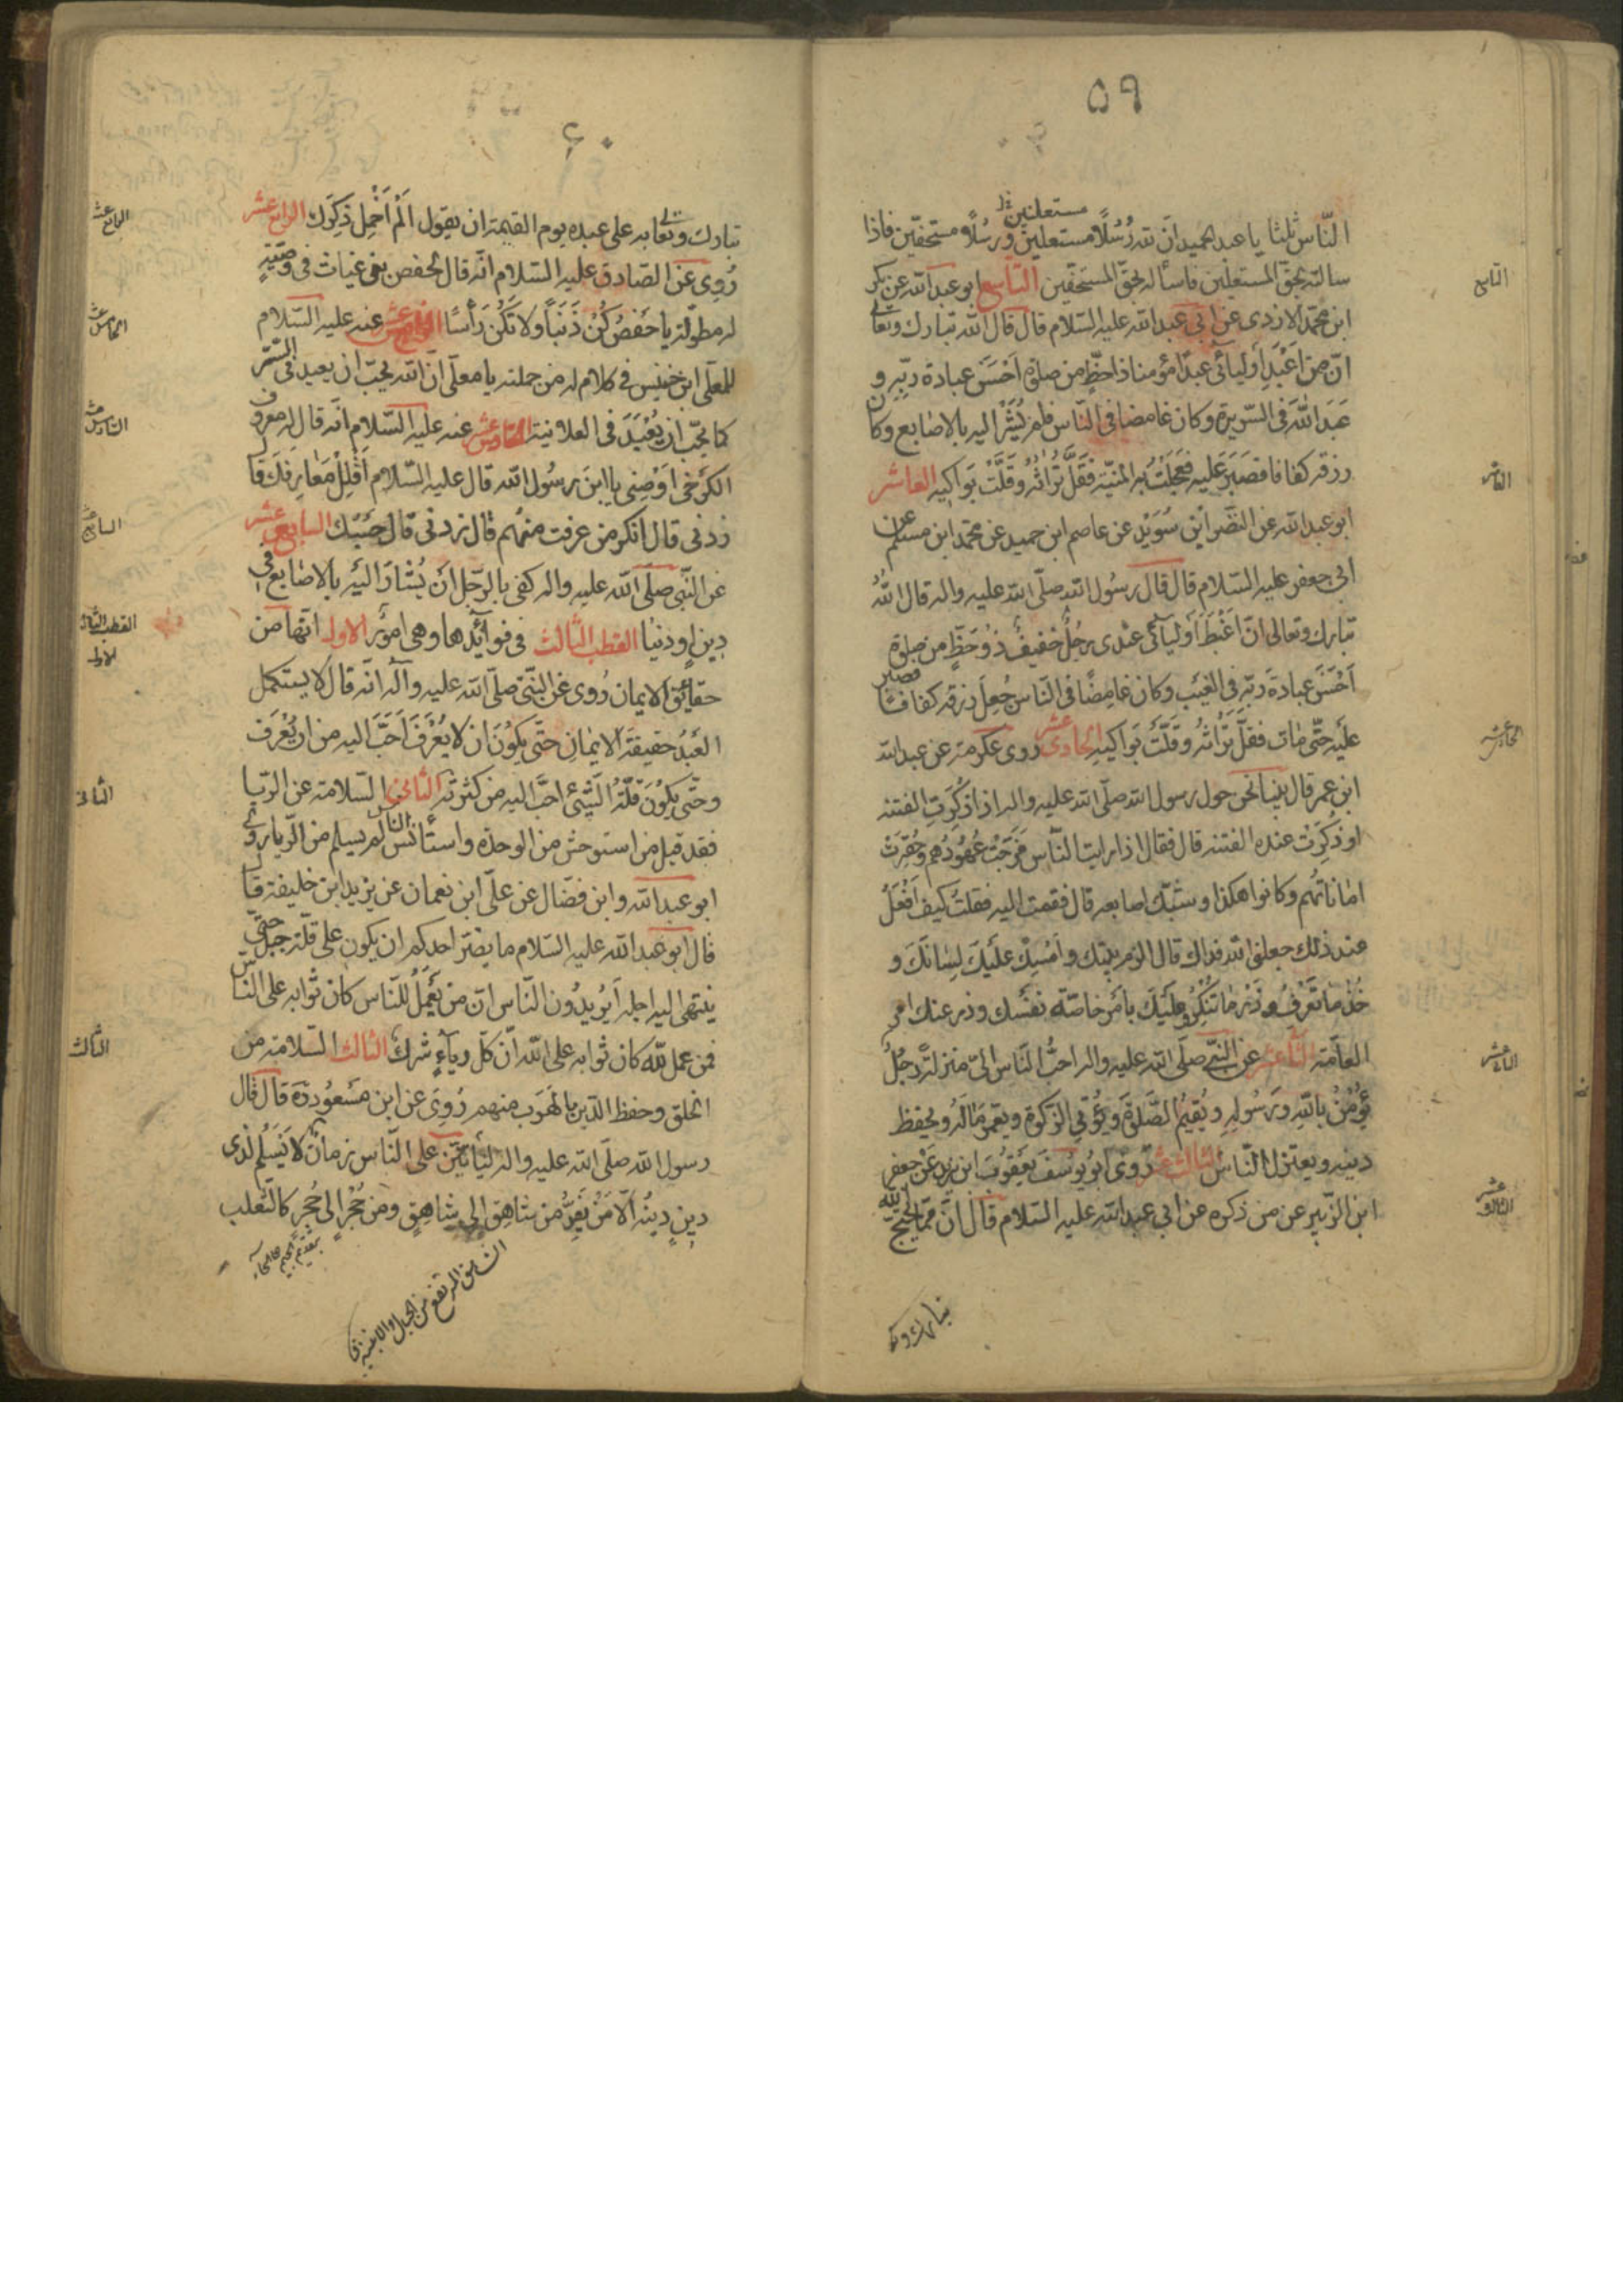 ٥٩
مستعلنين
الناس ثلثا يا عبد الحميد ان لله رُسُلًا مستعلنين ورُسُلًا مستخفين فاذا
سالته بحق المستعلنين فاساله بحق المستخفين التاسع ابو عبد الله عن بكر
ابن محمد الازدى عن ابى عبد الله عليه السلام قال قال الله تبارك وتعالى
انّ من اَعْبَدِ اَوليائى عبدًا مؤمنا ذا حظٍّ من صلوةٍ اَحْسَنَ عبادة ربّه و
عَبَدَ اللهَ فى السّريرة وكان غامضا فى الناس فلم يُشَرْ اليه بالاصابع وكان
رزقه كفافا فصَبَرَ عليه فعَجِلَتْ به المنيّة فقَلَّ تُراثُه وقَلَّتْ بَواكيه العاشر
ابو عبد الله عن النضر ابن سُوَيْد عن عاصم ابن حميد عن محمد ابن مسلم عن
ابى جعفر عليه السلام قال قال رسُول الله صلّى الله عليه واله قال اللهُ
تبارك وتعالى انّ اَغْبَطَ اَوليائى عندى رجُلٌ خفيفٌ ذُو حَظٍّ من صلوةٍ
اَحْسَنَ عبادةَ ربّه فى الغيب وكان غامِضًا فى النّاس جُعِلَ رزقه كفافًا فصبر
عليه حتّى مات فقلّ تُراثُه وقَلَّتْ بَواكيه الحادى عشر روى عكرمة عن عبد الله
ابن عمر قال بينا نحن حول رسول الله صلّى الله عليه واله اذا ذُكِرَتِ الفتنه
او ذُكِرَت عنده الفتنه قال فقال اذا رايت النّاس مَرَجَتْ عُهُودُهم وحُقِّرَتْ
اماناتُهم وكانوا هكذا وشبّك اصابعه قال فقمت اليه فقلت كيف اَفْعَلُ
عند ذلك جعلنى الله فداك قال الزم بيتك وامْسِكْ عليك لسانَكَ و
خُذْ ما تَعْرِفُ وذَرْ ما تُنْكِرُ وعليك بامْرِ خاصّة نفسك وذر عنك امر
العامّة الثانى عشر عن النبى صلّى الله عليه واله احبُّ النّاس الىّ منزلةً رجُلٌ
يُؤمنُ بالله ورسُولِهِ ويُقيمُ الصّلوةَ ويُؤتى الزّكوة ويعمر مالَهُ ويحفظ
دينه ويعتزل النّاسَ الثالث عشر روى ابو يوسف يعقوب ابن يزيد عن جعفر
ابن الزبير عن من ذكره عن ابى عبد الله عليه السلام قال انّ ممّا يحتج الله
تبارك وتعـ
التاسع
العاشر
الحادى عشر
الثانى عشر
الثالث عشر
٦٠
تبارك وتعالى به على عبده يوم القيمة ان يقول اَلَمْ اُخْمِل ذِكرَك الرابع عشر
رُوِى عن الصّادق عليه السّلام انّه قال لحفص بن غياث فى وصيّةٍ
له مطوّلة يا حَفْصُ كُنْ ذَنَبًا ولا تَكُن رَأسًا الخامس عشر عنه عليه السّلام
للمعلّى ابن خنيس فى كلام له من جملته يا معلّى انّ الله يحبّ ان يعبد فى السّر
كما يحبّ ان يُعْبَدَ فى العلانية السادس عشر عنه عليه السّلام انّه قال له معروف
الكرْخى اَوْصِنى يا ابنَ رسُول الله قال عليه السّلام اَقْلِلْ مَعارِفَكَ قال
زدنى قال انكر من عرفت منهُم قال زدنى قال حَسْبُكَ السابع عشر
عن النّبى صلّى الله عليه واله كفى بالرّجل اَن يُشارَ اليه بالاصابع فى
دينٍ او دنيا القطب الثالث فى فوائدها وهى امور الاول انّها من
حقائق الايمان رُوى عن النّبى صلّى الله عليه وآله انّه قال لا يستكمل
العَبْدُ حقيقةَ الايمان حتّى يكون ان لا يُعْرَفَ اَحَبَّ اليه من ان يُعْرَف
وحتّى يكُونَ قلّةُ الشّيئ احبَّ اليه من كثرته الثانى السّلامة عن الرّيا
فقد قيل من استوحش من الوحدة واستأنس بالناس لم يسلم من الرّيا روى
ابو عبد الله وابن فضّال عن علىّ ابن نعمان عن يزيد ابن خليفة قال
قال ابو عبد الله عليه السّلام ما يضرّ احدكم ان يكون على قلّة جبل حتّى
ينتهى اليه اجله اَيُريدُون النّاس انّ من يَعْمَلُ للنّاس كان ثوابه على الناس
فمن عمل لله كان ثوابه على الله انّ كلّ رياءٍ شرك الثالث السّلامة من
الخلق وحفظ الدّين بالهَرَب منهم رُوى عن ابن مَسْعُود ره قال قال
رسول الله صلّى الله عليه واله ليأتيَنّ على النّاس زمانٌ لا يَسْلَمُ لذى
دينٍ دينُه الّا مَنْ يَفِرُّ من شاهِقٍ الى شاهِقٍ ومن جُحْرٍ الى جُحْرٍ كالثّعلب
بتقديم الجيم على الحاء
الشاهق المرتفع من الجبال والابنية ق
الرابع عشر
الخامس عشر
السادس عشر
السابع عشر
القطب الثالث
الاول
الثانى
الثالث